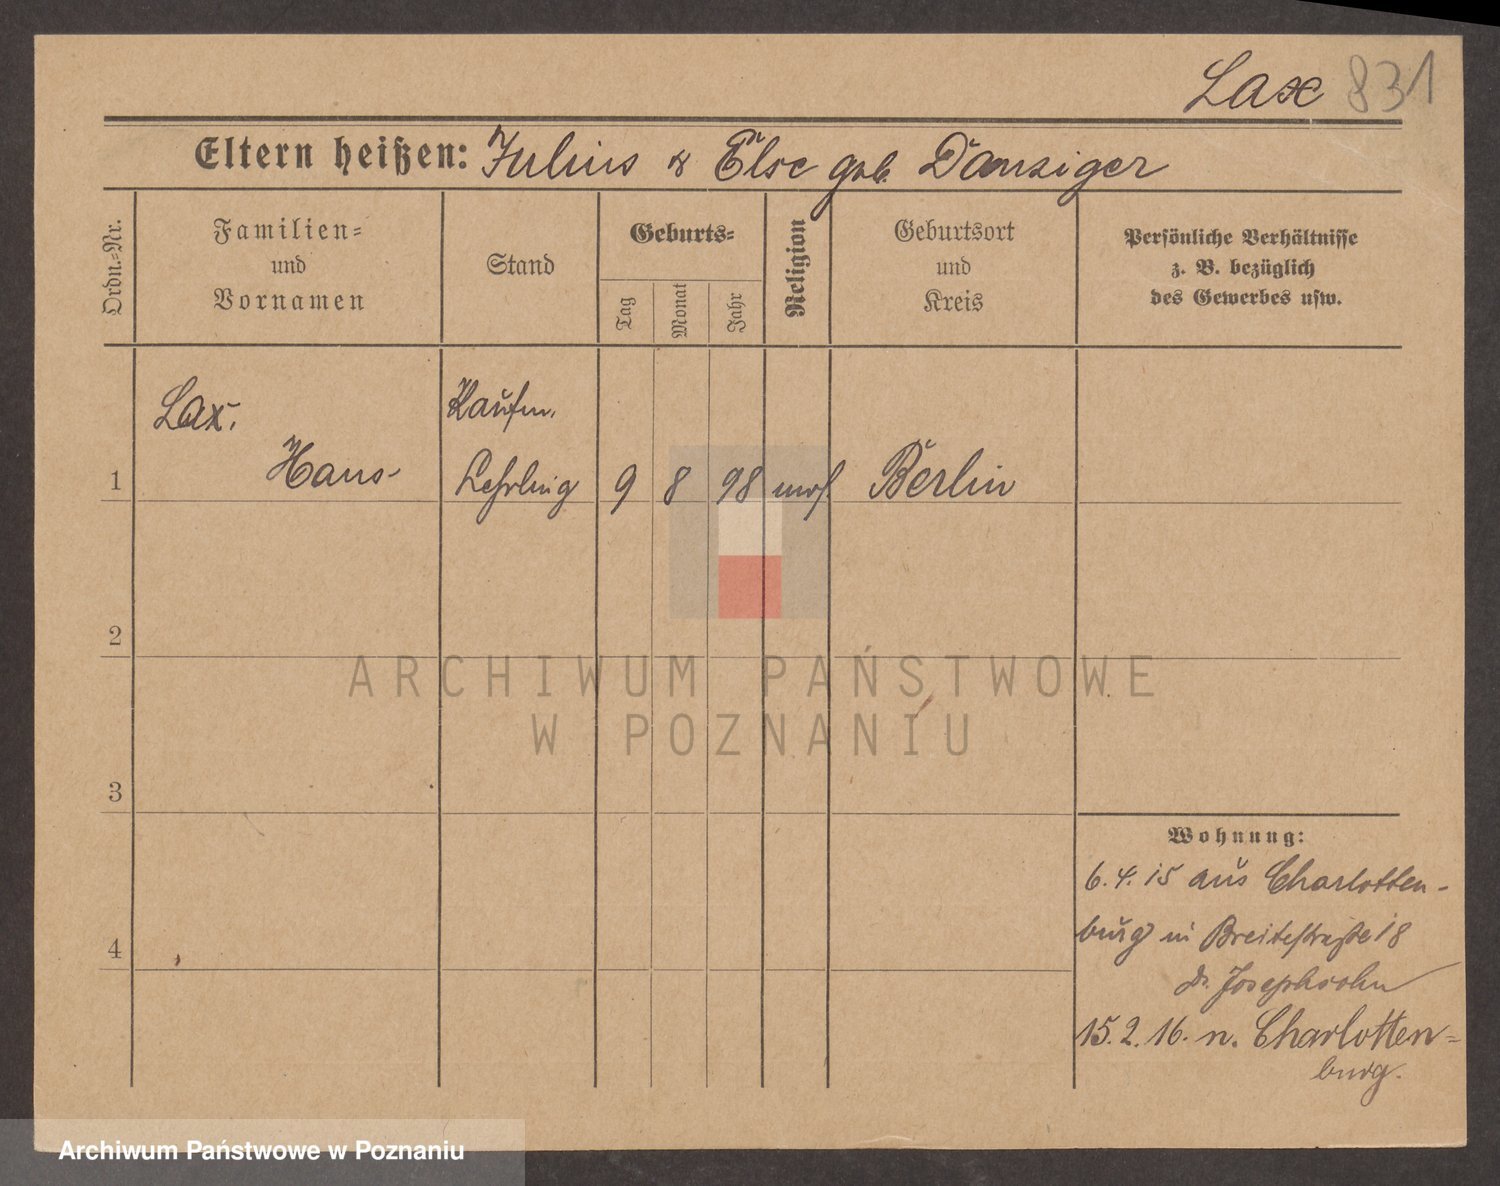 Lax 831
Eltern heißen: Julius & Else geb. Danziger
Ordn.-Nr.
Familien-
und
Vornamen
Stand
Geburts-
Tag
Monat
Jahr
Religion
Geburtsort
und
Kreis
Persönliche Verhältnisse
z. B. bezüglich
des Gewerbes usw.
Lax, Kaufm.
1 Hans Lehrling 9 8 98 mos Berlin
2
ARCHIWUM PAŃSTWOWE
W POZNANIU
3
Wohnung:
6.4.15 aus Charlotten-
burg in Breitestraße 18
4
Josephsohn
15.2.16. n. Charlotten-
burg.
Archiwum Państwowe w Poznaniu